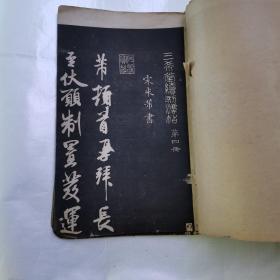 三希堂續刻法帖 第四冊
宋米芾書
芾頓首再拜長
至伏願制置發運